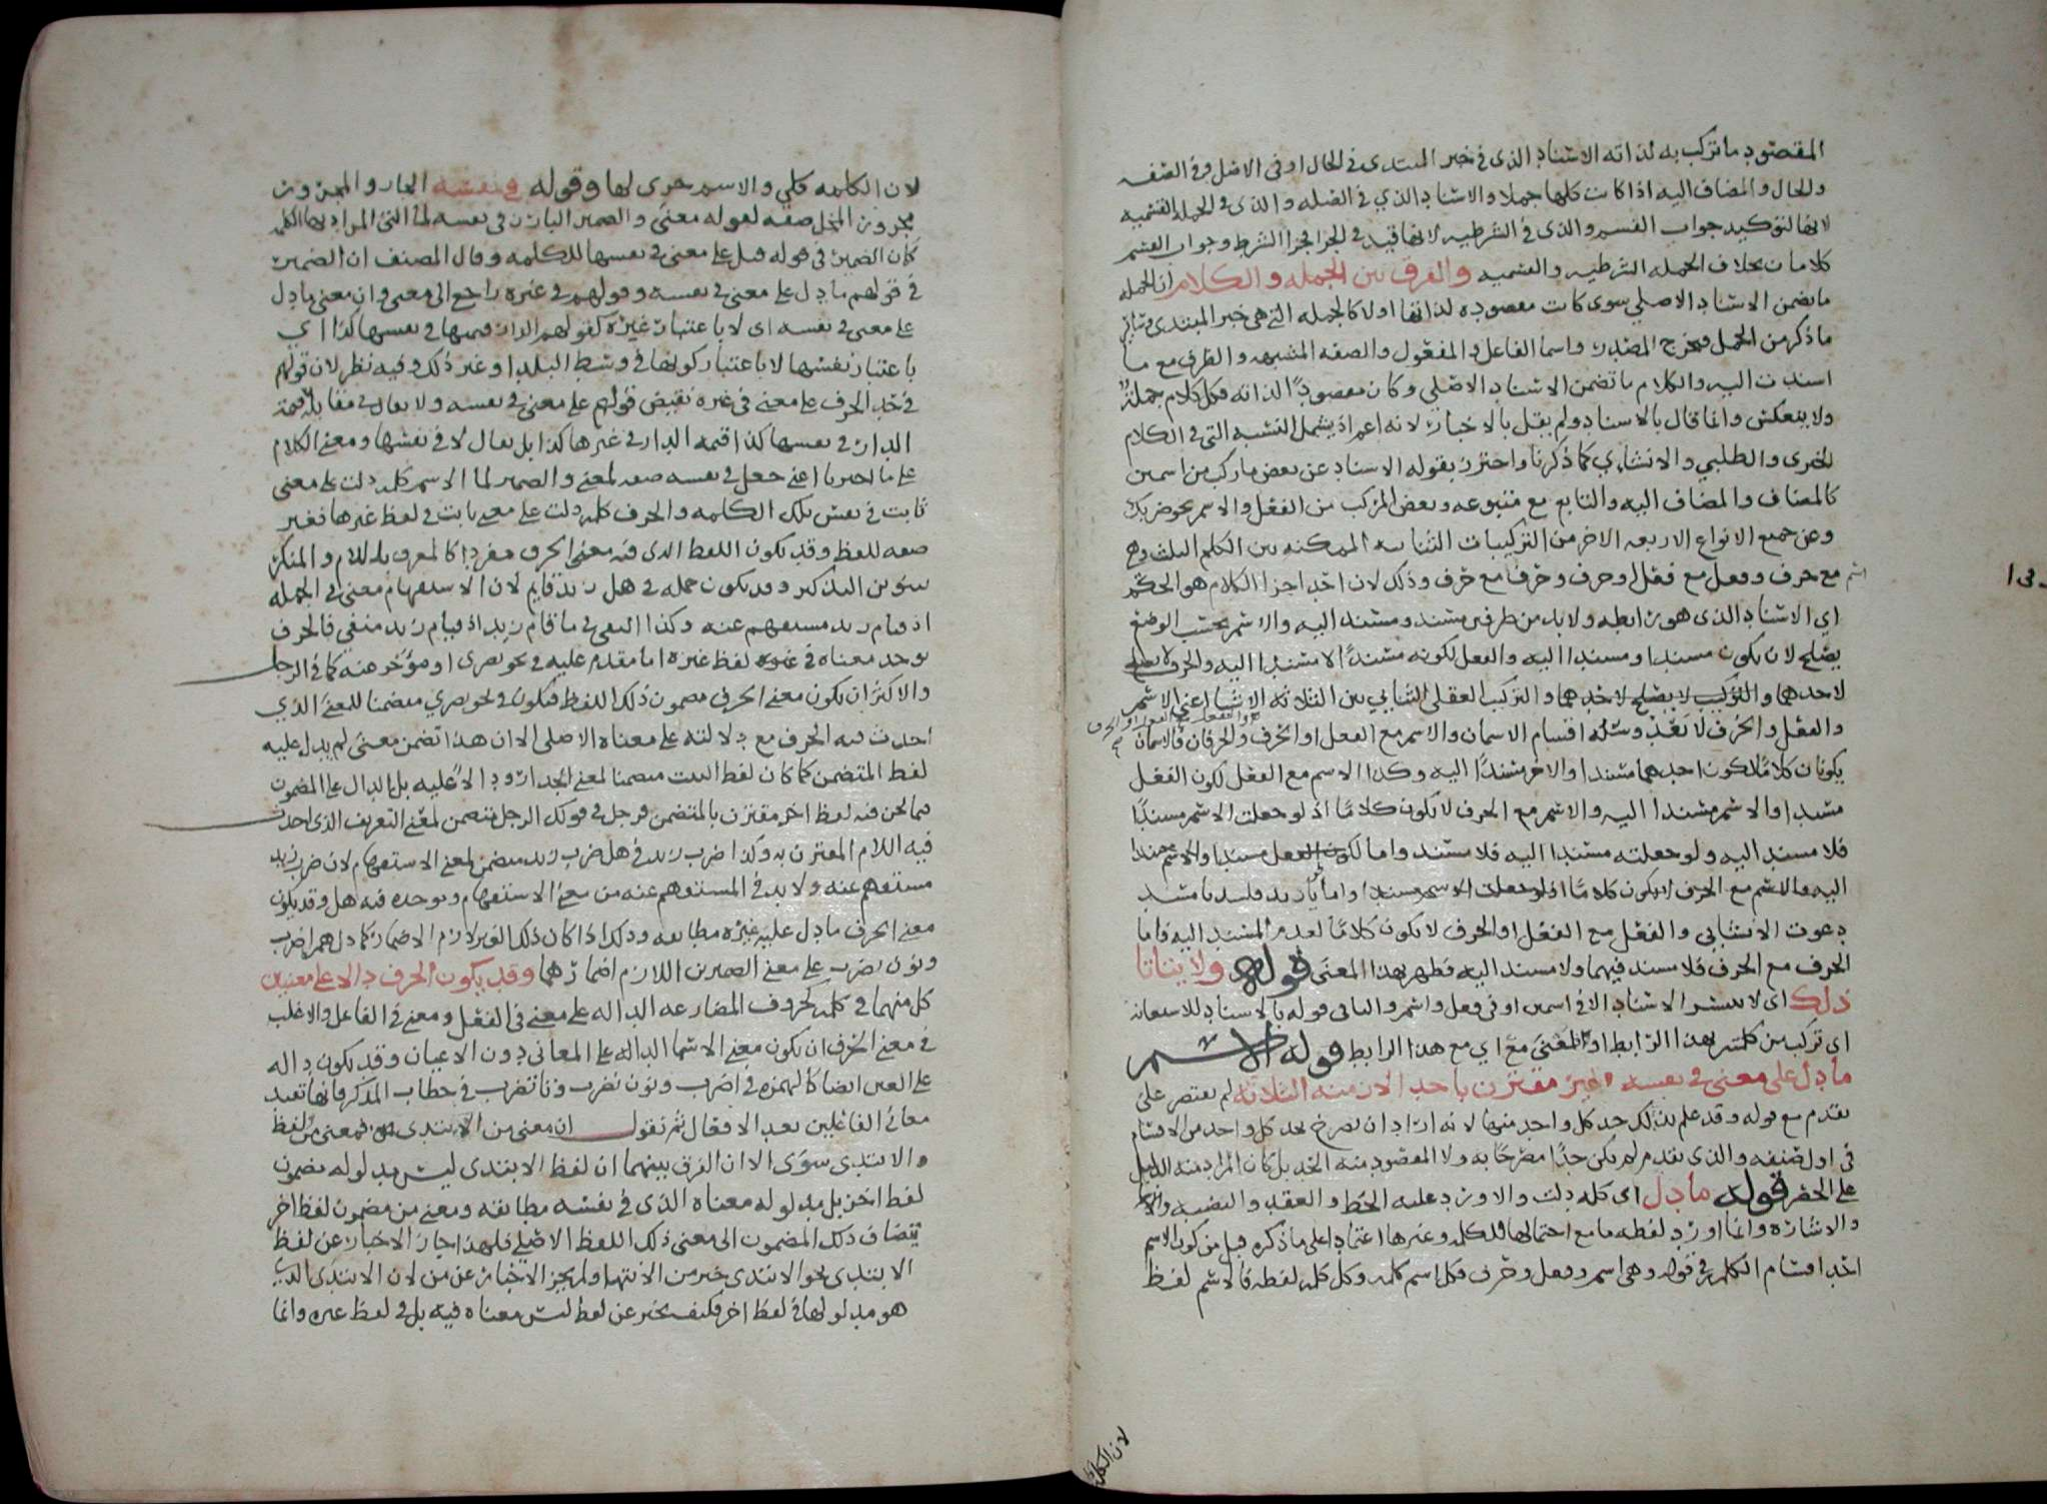 المقصود ما تركب به لذاته الاسناد الذى فى خبر المبتدى فى الحال او فى الاصل وفى الصفه
والحال والمضاف اليه اذا كانت كلها جملا والاسناد الذي فى الصله والذى فى الجمله القسميه
لانها لتوكيد جواب القسم والذى فى الشرطيه لانها قيد فى الجزا فجزا الشرط وجواب القسم
كلامان بخلاف الجمله الشرطيه والقسميه والفرق بين الجمله والكلام ان الجمله
ما تضمن الاسناد الاصلي سوى كانت مقصوده لذاتها اولا كالجمله التي هى خبر المبتدى وسائر
ما ذكر من الجمل فيخرج المصدر واسما الفاعل والمفعول والصفه المشبهه والظرف مع ما
اسندت اليه والكلام ما تضمن الاسناد الاصلي وكان مقصودًا لذاته فكل كلام جملة
ولا ينعكس وانما قال بالاسناد ولم يقل بالاخبار لانه اعم اذ يشمل النسبه التى فى الكلام
الخبرى والطلبي والانشاءي كما ذكرنا واحترز بقوله الاسناد عن بعض ما ركب من اسمين
كالمضاف والمضاف اليه والتابع مع متبوعه وبعض المركب من الفعل والاسم نحو ضربك
وعن جميع الانواع الاربعه الاخر من التركيبات الثنائيه الممكنه بين الكلم الثلث وهى
اسم مع حرف وفعل مع فعل او حرف وحرف مع حرف وذلك لان احد اجزا الكلام هو الحكم
اي الاسناد الذى هو رابطه ولا بد من طرفين مسند ومسند اليه والاسم بحسب الوضع
يصلح لان يكون مسندا ومسندا اليه والفعل لكونه مسندًا لا مسندا اليه والحرف لا يصلح
لاحدهما والتركيب لا يصلح لاحدهما والتركيب العقلى الثنايي بين الثلاثه الاشيا اعنى الاسم
والفعل والحرف لا تعدو ستة اقسام الاسمان والاسم مع الفعل او الحرف والحرفان فالاسمان
والفعل مع الفعل او الحرف
يكونان كلامًا لكون احدهما مسندا والاخر مسندًا اليه وكذا الاسم مع الفعل لكون الفعل
مسندا والاسم مسندا اليه والاسم مع الحرف لا يكون كلامًا اذ لو جعلت الاسم مسندًا
فلا مسند اليه ولو جعلته مسندا اليه فلا مسند واما لكون الفعل مسندا والاسم مسندا
اليه والاسم مع الحرف لا يكون كلامًا اذ لو جعلت الاسم مسندا واما يا زيد فلسد يا مسد
دعوت الانشائي والفعل مع الفعل او الحرف لا يكون كلامًا لعدم المسند اليه فاما
الحرف مع الحرف فلا مسند فيهما ولا مسند اليه فظهر بهذا المعنى قوله ولا يتاتا
ذلك اى لا يتيسر الاسناد الا فى اسمين او فى فعل واسم والبا فى قوله بالاسناد للاستعانه
اى تركب من كلمتين بهذا الرابط او بمعنى مع اي مع هذا الرابط قوله الاسم
ما دل على معنى فى نفسه غير مقترن باحد الازمنه الثلاثه لم يقتصر على
تقدم مع قوله وقد علم بذلك حد كل واحد منها لانه اراد ان يصرح بحد كل واحد من الاقسام
فى اول صنفه والذى تقدم لم يكن حدًا مصرحًا به ولا المقصود منه الحد بل كان المراد منه الدليل
على الحصر قوله ما دل اى كلمه دلت والا ورد عليه الخط والعقد والنصبه
والاشاره وانما اورد لفظه ما مع احتمالها للكلمه وغيرها اعتمادا على ما ذكره قبل من كون الاسم
احد اقسام الكلمه فى قوله وهى اسم وفعل وحرف فكل اسم كلمه وكل كلمه لفظه فالاسم لفظ
لان الكلمه
لان الكلمه كلي والاسم جزى لها وقوله فى نفسه الجار والمجرور
مجرور المحل صفه لقوله معنى والضمير البارز فى نفسه لما التى المراد بها الكلمه
كان الضمير فى قوله قبل على معنى فى نفسها للكلمه وقال المصنف ان الضمير
فى قولهم ما دل على معنى فى نفسه وقولهم فى غيره راجع الى معنى وان معنى ما دل
على معنى فى نفسه اى لا باعتبار غيره كقولهم الدار قيمتها فى نفسها كذا اي
باعتبار نفسها لا باعتبار كونها فى وسط البلد او غير ذلك وفيه نظر لان قولهم
فى حد الحرف على معنى فى غيره نقيض قولهم على معنى فى نفسه ولا يقال فى مقابله قيمة
الدار فى نفسها كذا قيمه الدار فى غيرها كذا بل يقال لا فى نفسها ومعنى الكلام
على ما اخترنا اعنى جعل فى نفسه صفه لمعنى والضمير لما الاسم كلمه دلت على معنى
ثابت فى نفس تلك الكلمه والحرف كلمه دلت على معنى ثابت فى لفظ غيرها فغير
صفه للفظ وقد يكون اللفظ الذى فيه معنى الحرف مفردا كالمعرف باللام والمنكر
بتنوين التنكير وقد يكون جمله فى هل زيد قايم لان الاستفهام معنى فى الجمله
اذ قيام زيد مستفهم عنه وكذا النفى فى ما قام زيد اذ قيام زيد منفي فالحرف
يوجد معناه فى لفظ غيره اما مقدم عليه فى نحو بصرى او مؤخر عنه كما فى الرجل
والاكثر ان يكون معنى الحرف مضمون ذلك اللفظ فيكون فى نحو بصري متضمنا للمعنى الذي
احدث فيه الحرف مع دلالته على معناه الاصلى الا ان هذا تضمن معنى لم يدل عليه
لفظ المتضمن كما كان لفظ البيت متضمنا لمعنى الجدار ودالًا عليه بل الدال على المضمون
فيما نحن فيه لفظ اخر مقترن بالمتضمن فرجل فى قولك الرجل متضمن لمعنى التعريف الذى احدث
فيه اللام المقترن به وكذا ضرب زيد فى هل ضرب زيد متضمن لمعنى الاستفهام لان ضرب زيد
مستفهم عنه ولا بد فى المستفهم عنه من معنى الاستفهام وموجده فيه هل وقد يكون
معنى الحرف ما دل عليه غيره مطابقه وذلك اذا كان ذلك الغير لازم الاضمار كما دل همزة اضرب
ونون نضرب على معنى الضميرين اللازم اضمارهما وقد يكون الحرف دالا على معنيين
كل منهما فى كلمه كحروف المضارعه الداله على معنى فى الفعل ومعنى فى الفاعل والاغلب
فى معنى الحرف ان يكون معنى الاسما الداله على المعانى دون الاعيان وقد يكون داله
على العين ايضا كالهمزه فى اضرب ونون نضرب وتا تضرب فى خطاب المذكر فانها تفيد
معانى الفاعلين بعد الافعال ثم نقول ان معنى من الابتدى فمعنى من ولفظ
والابتدى سوى الا ان الفرق بينهما ان لفظ الابتدى ليس مدلوله مضمون
لفظ اخر بل مدلوله معناه الذى فى نفسه مطابقه ومعنى من مضمون لفظ اخر
ينضاف ذلك المضمون الى معنى ذلك اللفظ الاصلي فلهذا جاز الاخبار عن لفظ
الابتدى نحو الابتدى خير من الانتها ولم يجز الاخبار عن من لان الابتدى الذى
هو مدلولها فى لفظ اخر فكيف يخبر عن لفظ ليس معناه فيه بل فى لفظ غيره وانما